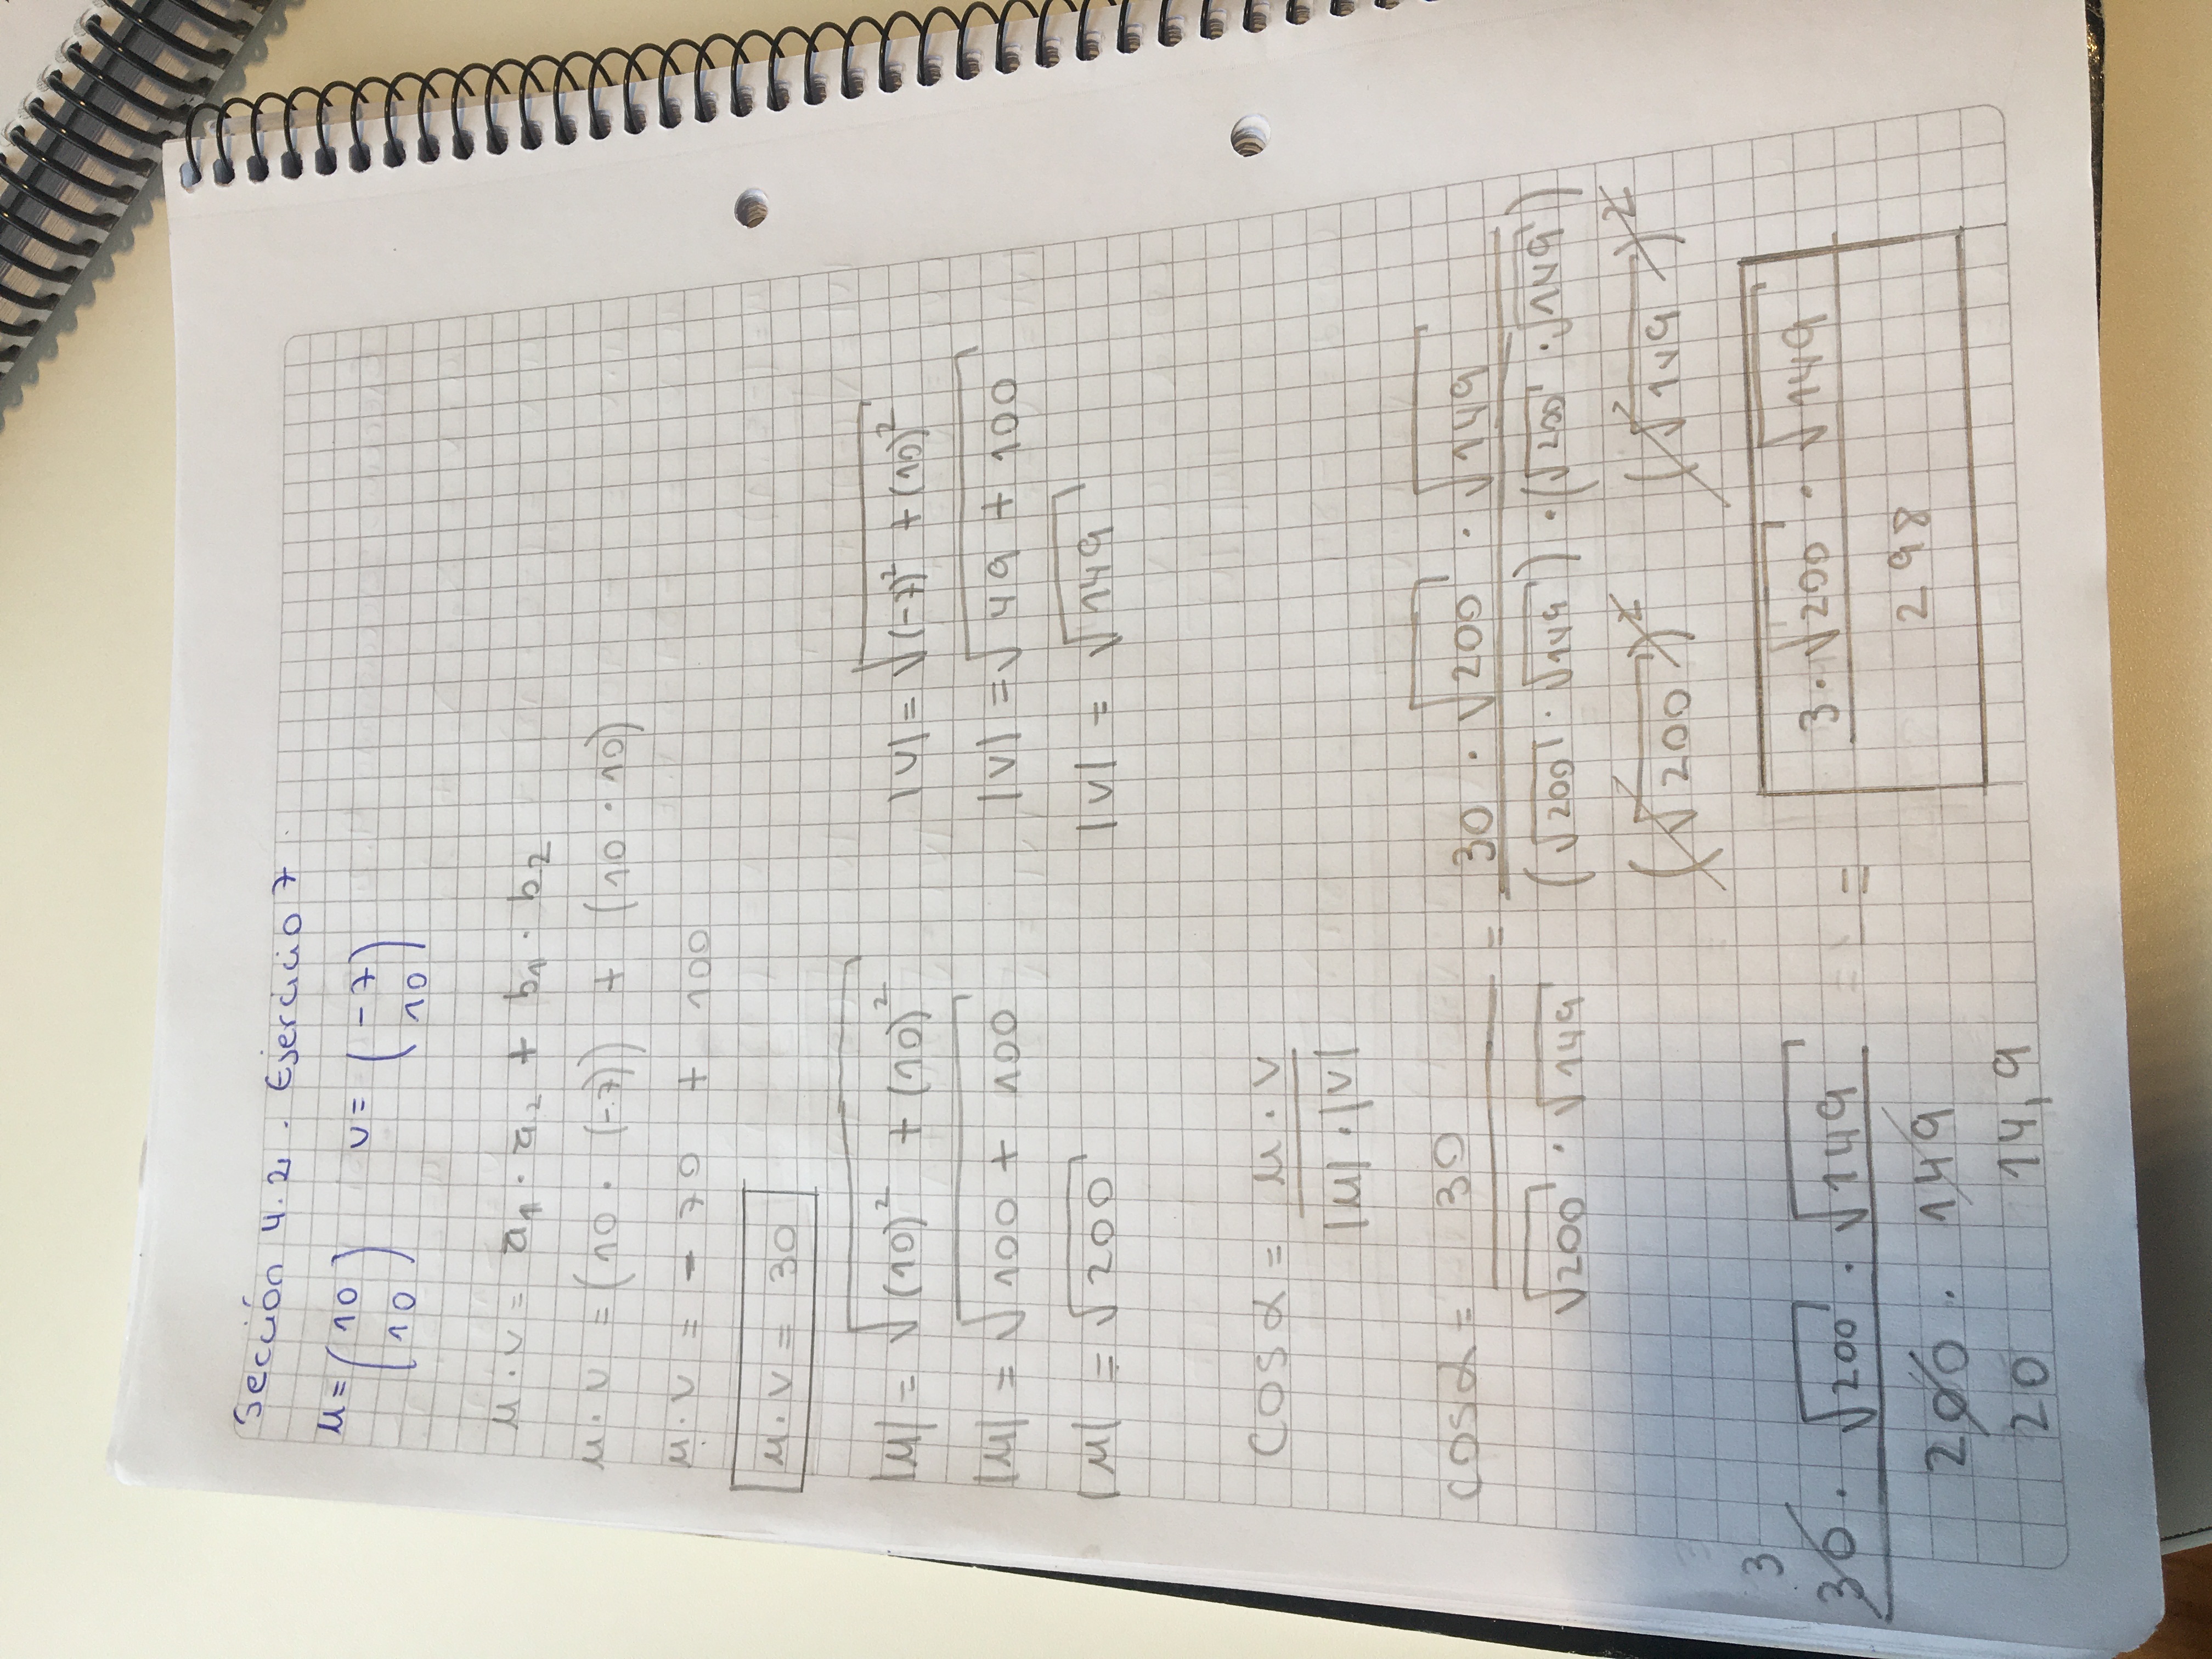 Sección 4.2. Ejercicio 7.
μ = (10 10) v = (-7 10)
μ · v = a₁ · a₂ + b₁ · b₂
μ · v = (10 · (-7)) + (10 · 10)
μ · v = - 70 + 100
μ · v = 30
|μ| = √(10)² + (10)² |v| = √(-7)² + (10)²
|μ| = √100 + 100 |v| = √49 + 100
|μ| = √200 |v| = √149
cos α = μ · v / |μ| · |v|
cos α = 30 / √200 · √149 = 30 · √200 · √149 / (√200 · √149) · (√200 · √149)
(√200)² (√149)²
3
30 · √200 · √149 / 200 · 149 = 3 · √200 · √149 / 298
20 14,9